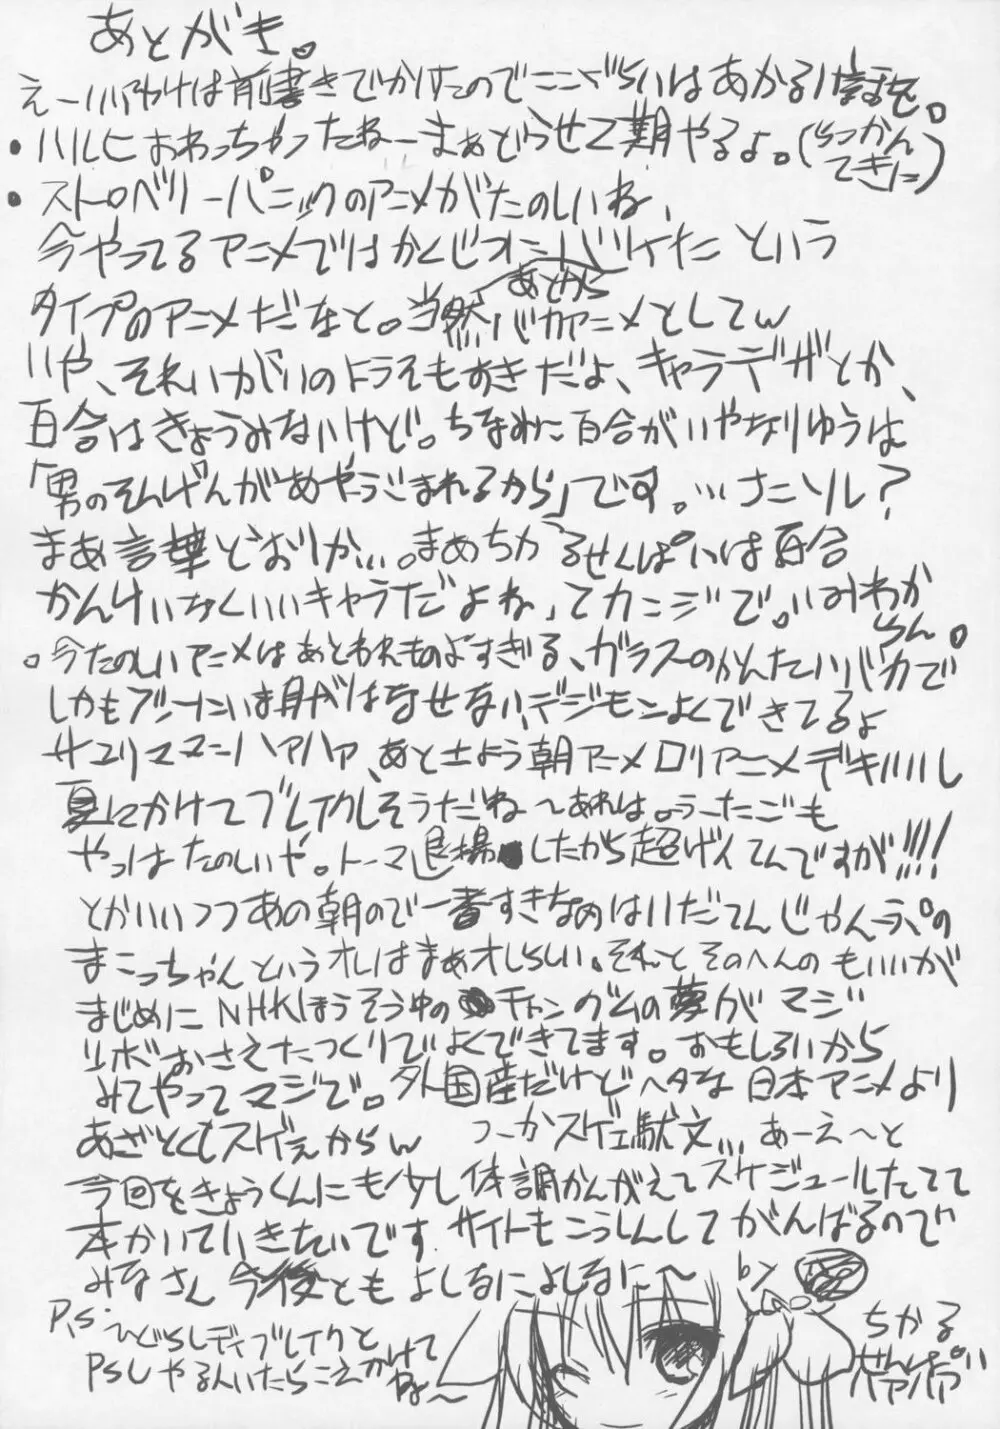 あとがき。
えーいいわけは前書きでかいたのでここぐらいはあかるい話を。
・ハルヒおわっちゃったねーまぁどうせ2期やるよ。(らっかんてきに)
・ストロベリーパニックのアニメがたのしいね、
今やってるアニメではかくじつにバケた という
タイプのアニメだなと。当然あとからバカアニメとしてw
いや、それいがいのドラマもすきだよ、キャラデザとか、
百合はきょうみないけど。ちなみに百合がいやなりゆうは
「男のそんげんがあやうごまれるから」です。…なにソレ?
まあ言葉どおりか…。まぁちかるせんぱいは百合
かんけいなくいいキャラだよね、てカンジで。いみわからん。
。今たのしいアニメはあと われものよすぎる、ガラスのかんたいバカで
しかもブソーにいま目がはなせない、デジモンよくできてるよ
サユリママンハアハア、あと土よう朝アニメロリアニメデキいいし
夏にかけてブレイクしそうだね〜あれは。うーたごも
やっぱたのしいや。トーマ退場したから超げんてんですが!!!!
とかいいつつあの朝ので一番すきなのはいだてんじゃんぷの
まこっちゃんというオレはまぁオレらしい。それとそのへんのもいいが
まじめにNHKほうそう中のチャングムの夢がマジ
ツボおさえたつくりでよくできてます。おもしろいから
みてやってマジで。外国産だけどヘタな日本アニメより
あざとくもスゲぇからw つーかスゲェ駄文… あーえ〜と
今回をきょうくんにも少し体調かんがえてスケジュールたてて
本かいていきたいです サイトもこうしんしてがんばるので
みなさん今後ともよしなによしなに〜
P.S.
ひぐらしディブレイクと
PSUやる人いたらこえかけてね〜
ちかる
せんぱい
ハァハァ